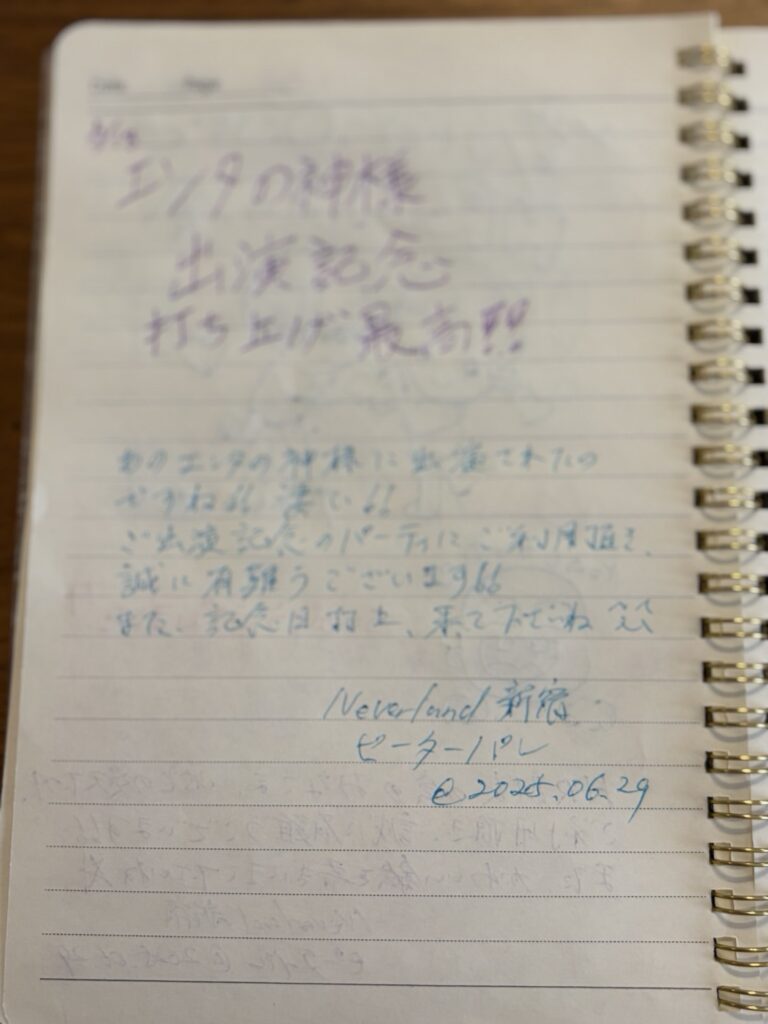 エンタの神様
出演記念
打ち上げ最高!!
あのエンタの神様に出演されたの
ですね!! 凄い!!
ご出演記念のパーティにご利用頂き、
誠に有難うございます!!
また、記念日打上、来て下さいね ^^
Neverland 新宿
ピーターパン
@ 2025.06.29